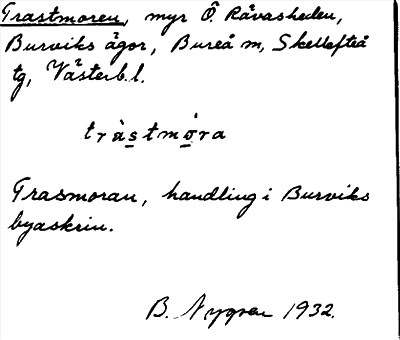 Trastmoren, myr Ö. Rävasheden,
Burviks ägor, Bureå m, Skellefteå
tg, Västerb.l.
tràstmo̱ra
Trasmoran, handling i Burviks
byaskrin.
B. Nygren 1932.